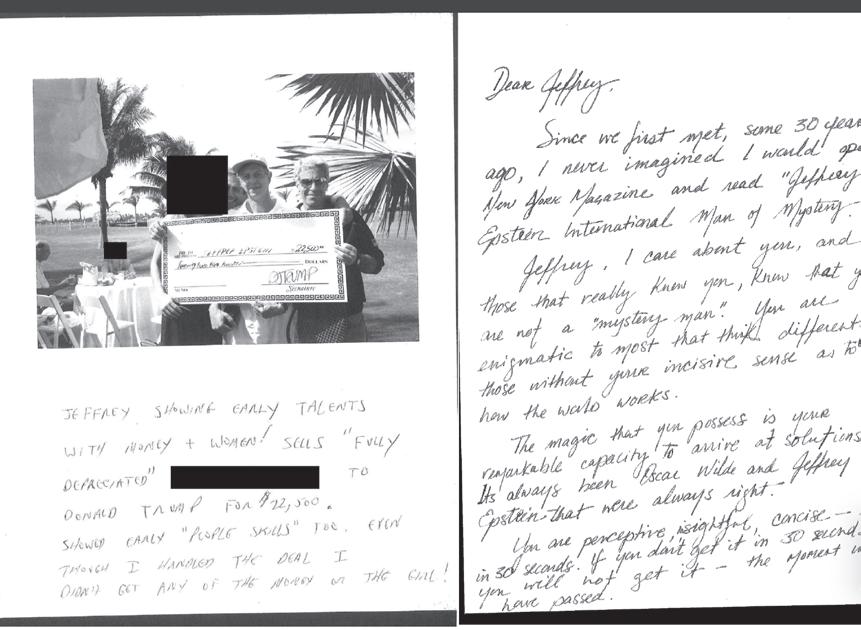 JEFFREY EPSTEIN
22,500
DOLLARS
DJTRUMP
JEFFREY SHOWING EARLY TALENTS
WITH MONEY + WOMEN! SELLS "FULLY
DEPRECIATED" TO
DONALD TRUMP FOR $22,500.
SHOWED EARLY "PEOPLE SKILLS" TOO. EVEN
THOUGH I HANDLED THE DEAL I
DIDN'T GET ANY OF THE MONEY OR THE GIRL!
Dear Jeffrey,
Since we first met, some 30 year
ago, I never imagined I would
New York Magazine and read "Jeffrey
Epstein International Man of Mystery.
Jeffrey, I care about you, and
those that really know you, know that y
are not a "mystery man". You are
enigmatic to most that think different
those without your incisive sense as to
how the world works.
The magic that you possess is your
remarkable capacity to arrive at solutions
Its always been Oscar Wilde and Jeffrey
Epstein that were always right.
You are perceptive, insightful, concise —
in 30 seconds. If you don't get it in 30 second
you will not get it — the moment w
have passed.